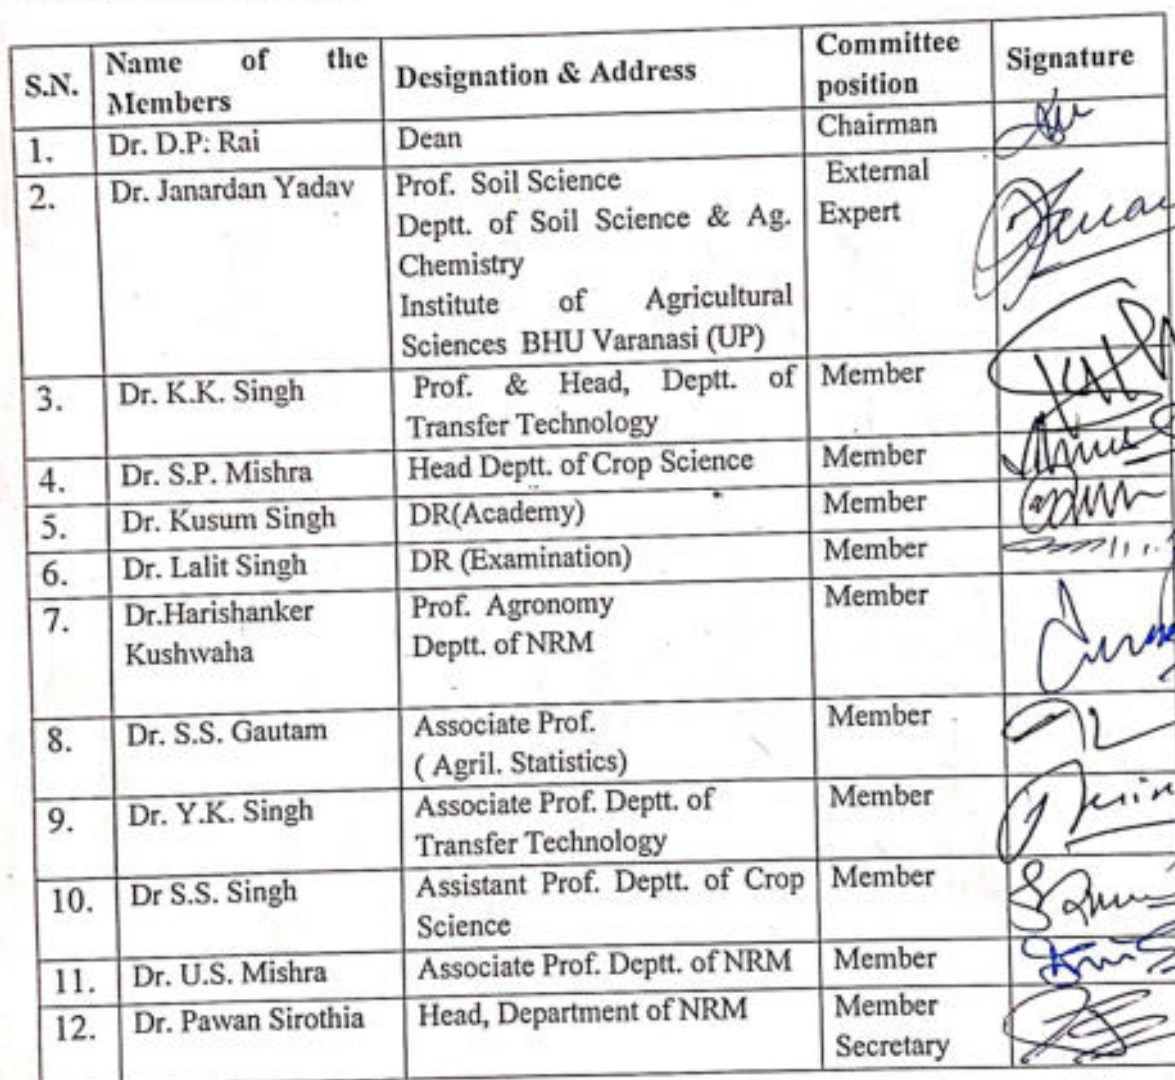 S.N. Name of the Members Designation & Address Committee position Signature
1. Dr. D.P: Rai Dean Chairman
2. Dr. Janardan Yadav Prof. Soil Science External
Deptt. of Soil Science & Ag. Expert
Chemistry
Institute of Agricultural
Sciences BHU Varanasi (UP)
3. Dr. K.K. Singh Prof. & Head, Deptt. of Member
Transfer Technology
4. Dr. S.P. Mishra Head Deptt. of Crop Science Member
5. Dr. Kusum Singh DR(Academy) Member
6. Dr. Lalit Singh DR (Examination) Member
7. Dr.Harishanker Prof. Agronomy Member
Kushwaha Deptt. of NRM
8. Dr. S.S. Gautam Associate Prof. Member
( Agril. Statistics)
9. Dr. Y.K. Singh Associate Prof. Deptt. of Member
Transfer Technology
10. Dr S.S. Singh Assistant Prof. Deptt. of Crop Member
Science
11. Dr. U.S. Mishra Associate Prof. Deptt. of NRM Member
12. Dr. Pawan Sirothia Head, Department of NRM Member
Secretary